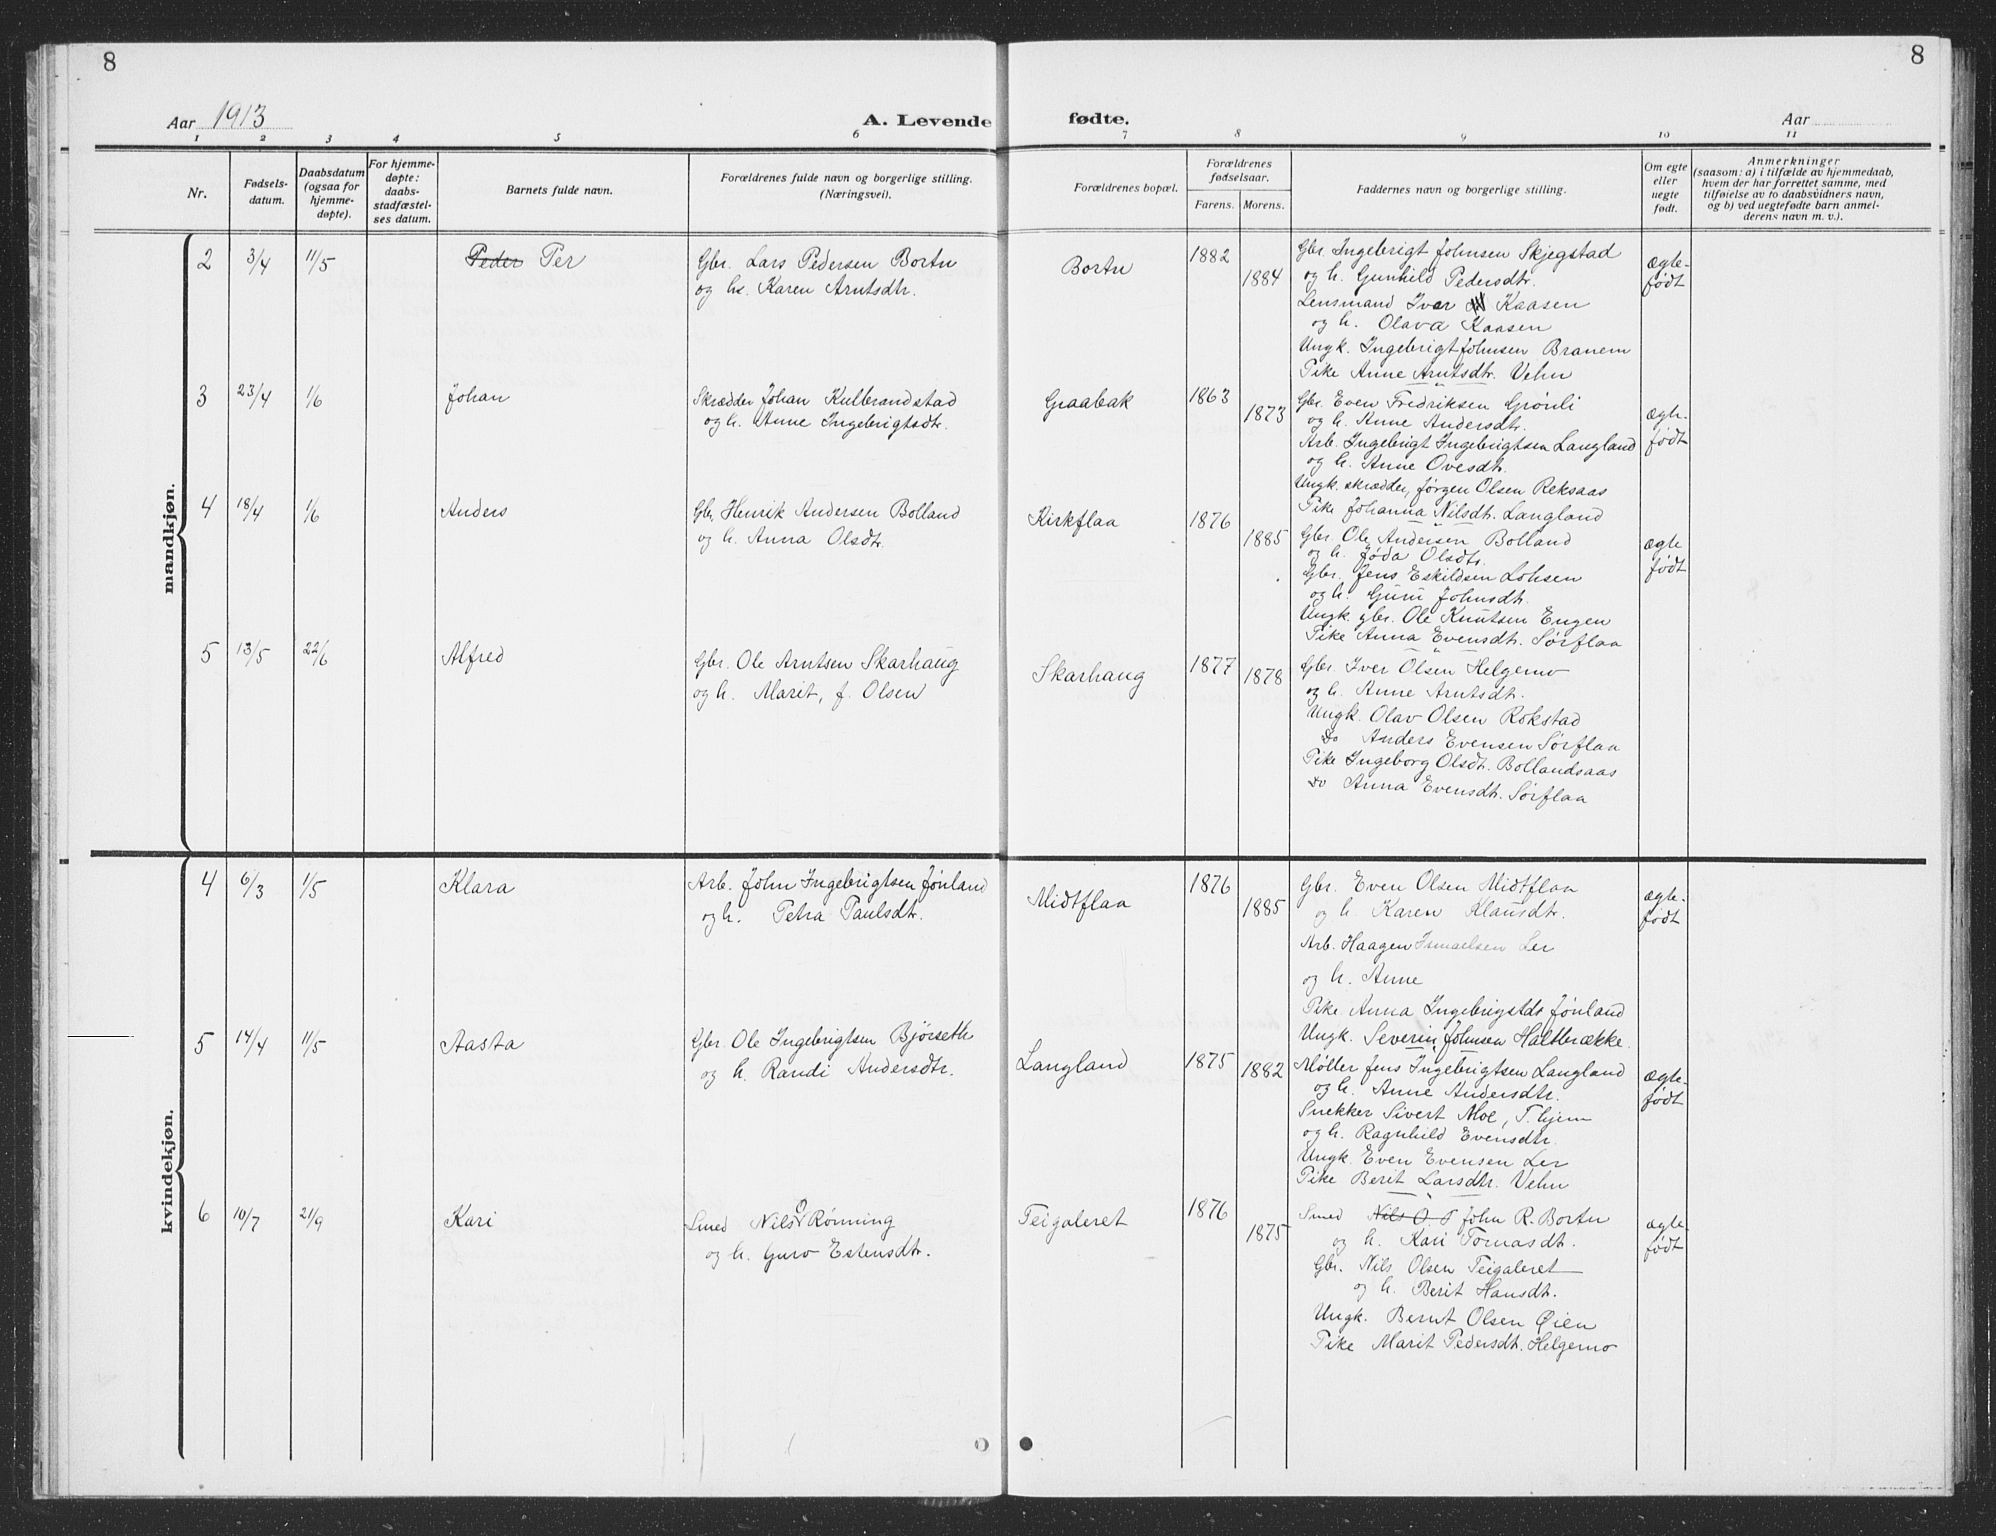 8
8
Aar 1913
A. Levende fødte.
Aar
1 2 3 4 5 6 7 8 9 10 11
Nr.
Fødsels-
datum.
Daabsdatum
(ogsaa for
hjemme-
døpte).
For hjemme-
døpte:
daabs-
stadfæstel-
ses datum.
Barnets fulde navn.
Forældrenes fulde navn og borgerlige stilling.
(Næringsvei).
Forældrenes bopæl.
Forældrenes
fødselsaar.
Farens. Morens.
Faddernes navn og borgerlige stilling.
Om egte
eller
uegte
født.
Anmerkninger
(saasom: a) i tilfælde av hjemmedaab,
hvem der har forrettet samme, med
tilføielse av to daabsvidners navn,
og b) ved uegtefødte barn anmel-
derens navn m. v.).
mandkjøn.
2 3/4 11/5 Peder Per
Gbr. Lars Pedersen Bortn
og hs. Karen Arntsdtr.
Bortn
1882
1884
Gbr. Ingebrigt Johnsen Skjegstad
og h. Gunhild Pedersdtr.
Lensmand Iver Kaasen
og h. Olava Kaasen
Ungk. Ingebrigt Johnsen Branem
Pike Anne Arntsdtr. Vehn
ægte-
født
3 23/4 1/6 Johan
Skrædder Johan Kulbrandstad
og h. Anne Ingebrigtsdtr.
Graabak
1863
1873
Gbr. Even Fredriksen Grønli
og h. Anne Andersdtr.
Arb. Ingebrigt Ingebrigtsen Langland
og h. Anne Ovesdtr.
Ungk. skrædder, Jørgen Olsen Reksaas
Pike Johanna Nilsdt. Langland
ægte-
født
4 18/4 1/6 Anders
Gbr. Henrik Andersen Bolland
og h. Anna Olsdtr.
Kirkflaa
1876
1885
Gbr. Ole Andersen Bolland
og h. Jøda Olsdtr.
Gbr. Jens Eskildsen Lohsen
og h. Guru Johnsdt.
Ungk. gbr. Ole Knutsen Engen
Pike Anna Evensdtr. Sørflaa
ægte
født
5 13/5 22/6 Alfred
Gbr. Ole Arntsen Skarhaug
og h. Marit, f. Olsen
Skarhaug
1877
1878
Gbr. Iver Olsen Helgemo
og h. Anne Arntsdt.
Ungk. Olav Olsen Rokstad
Do Anders Evensen Sørflaa
Pike Ingeborg Olsdt. Bollandsaas
Do Anna Evensdt. Sørflaa
kvindekjøn.
4 6/3 1/5 Klara
Arb. John Ingebrigtsen Jønland
og h. Petra Paulsdt.
Midtflaa
1876
1885
Gbr. Even Olsen Midtflaa
og h. Karen Klausdtr.
Arb. Haagen Ismaelsen Ler
og h. Anne
Pike Anna Ingebrigstds Jønland
Ungk. Severin Johnsen Haltbrække.
ægte-
født
5 14/4 11/5 Aasta
Gbr. Ole Ingebrigtsen Bjørseth
og h. Randi Andersdtr.
Langland
1875
1882
Møller Jens Ingebrigtsen Langland
og h. Anne Andersdtr.
Snekker Sivert Moe, T.hjem
og h. Ragnhild Evensdtr.
Ungk. Even Evensen Ler
Pike Berit Larsdtr. Vehn
ægte-
født
6 10/7 21/9 Kari
Smed Nils O Rønning
og h. Guro Estensdtr.
Teigaleret
1876
1875
Smed Nils O. T John R. Bortn
og h. Kari Tomasdt.
Gbr. Nils Olsen Teigaleret
og h. Berit Hansdt.
Ungk. Bernt Olsen Øien
Pike Marit Pedersdt. Helgemo
ægte
født